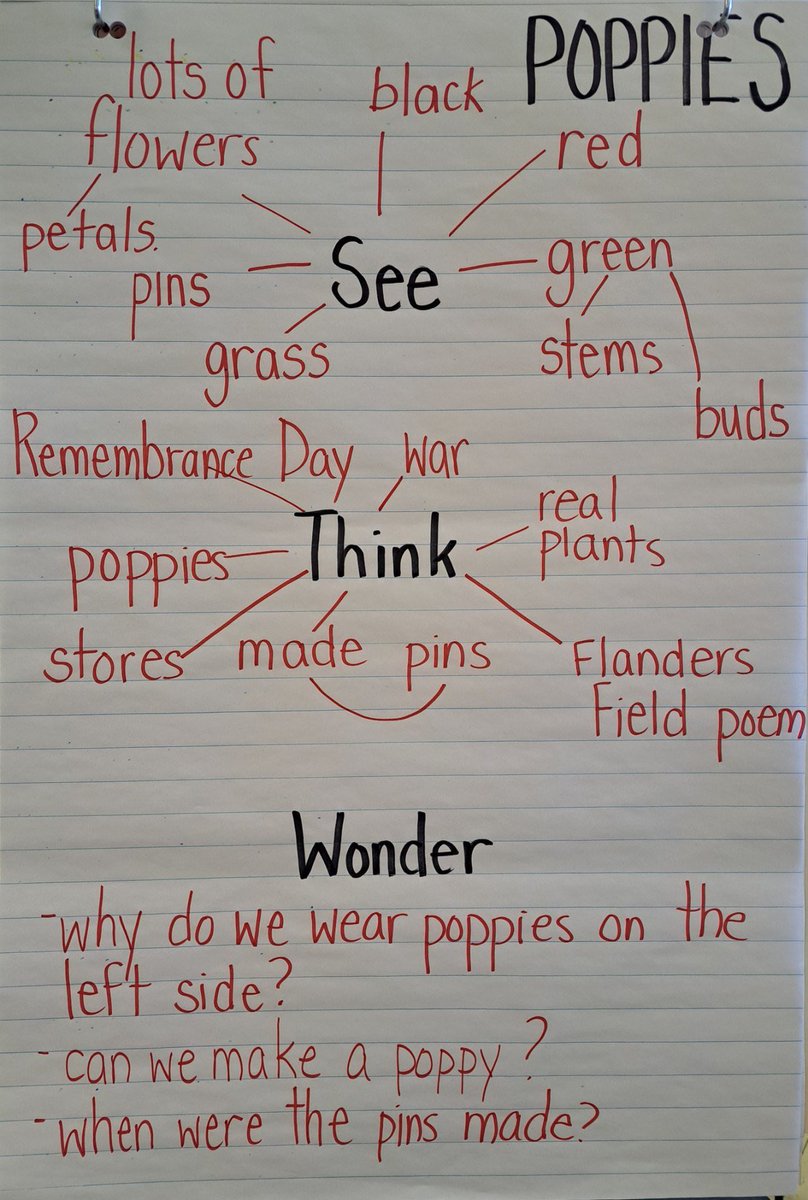 POPPIES
lots of
flowers
black
red
petals.
pins
See
green
grass
stems
buds
Remembrance Day
war
real
plants
poppies
Think
stores
made pins
Flanders
Field poem
Wonder
-why do we wear poppies on the
left side?
-can we make a poppy?
-when were the pins made?